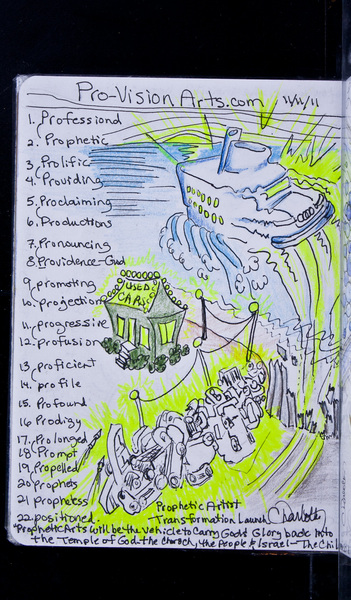 Pro-Vision Arts.com 11/11/11
1. Professional
2. Prophetic
3. Prolific
4. Providing
5. Proclaiming
6. Productions
7. Pronouncing
8. Providence-God
9. promoting
10. projection
11. progressive
12. profusion
13. proficient
14. profile
15. Profound
16 Prodigy
17. Prolonged
18. Prompt
19. Propelled
20 prophets
21 prophetess
22. positioned.
USED
CARS
Prophetic Artist
Transformation Launch Charlotte
"Prophetic Arts will be the vehicle to Carry God's Glory back into
the Temple of God-the Church, the People & Israel- The Chil